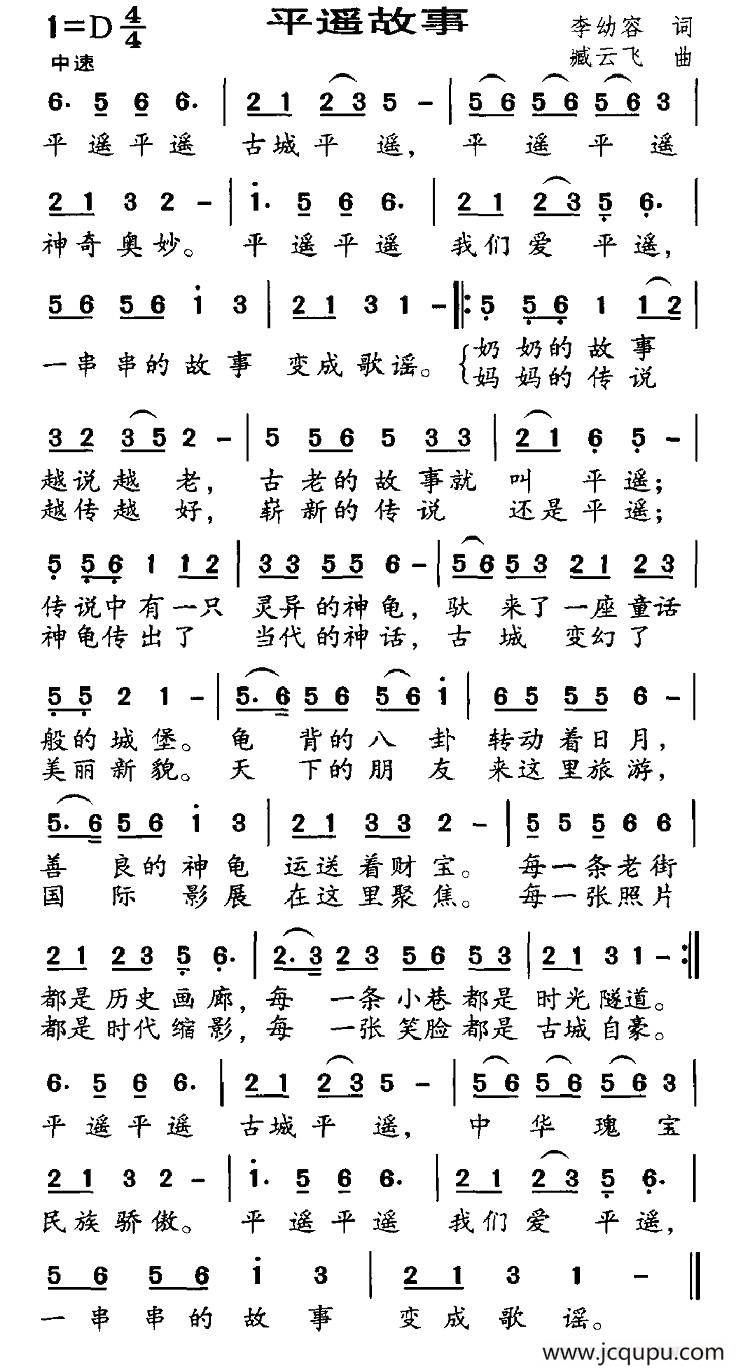 1=D 4/4 平遥故事 李幼容 词
中速 臧云飞 曲
6. 5 6 6. | 2 1 2 3 5 - | 5 6 5 6 5 6 3 |
平 遥 平 遥 古城 平 遥， 平 遥 平 遥
2 1 3 2 - | i. 5 6 6. | 2 1 2 3 5 6. |
神奇奥妙。 平 遥 平 遥 我们 爱 平 遥，
5 6 5 6 i 3 | 2 1 3 1 - ‖: 5 5 6 1 1 2 |
一串 串的 故 事 变成歌谣。 {奶 奶的 故 事
妈 妈的 传 说
3 2 3 5 2 - | 5 5 6 5 3 3 | 2 1 6 5 - |
越说越 老， 古 老的 故 事就 叫 平 遥；
越传越 好， 崭 新的 传 说 还是 平 遥；
5 5 6 1 1 2 | 3 3 5 5 6 - | 5 6 5 3 2 1 2 3 |
传 说中 有 一只 灵异 的神 龟， 驮 来了 一座 童话
神 龟传 出 了 当代 的神 话， 古 城 变幻 了
5 5 2 1 - | 5. 6 5 6 5 6 i | 6 5 5 5 6 - |
般的 城 堡。 龟 背的 八 卦 转动 着日 月，
美丽 新 貌。 天 下的 朋 友 来这 里旅 游，
5. 6 5 6 i 3 | 2 1 3 3 2 - | 5 5 5 6 6 |
善 良的 神 龟 运送 着财 宝。 每一条老街
国 际 影 展 在这 里聚 焦。 每一张照片
2 1 2 3 5 6. | 2. 3 2 3 5 6 5 3 | 2 1 3 1 - :‖
都是 历史 画 廊， 每 一条 小巷 都是 时光 隧 道。
都是 时代 缩 影， 每 一张 笑脸 都是 古城 自 豪。
6. 5 6 6. | 2 1 2 3 5 - | 5 6 5 6 5 6 3 |
平 遥 平 遥 古城 平 遥， 中 华 瑰 宝
2 1 3 2 - | i. 5 6 6. | 2 1 2 3 5 6. |
民族 骄 傲。 平 遥 平 遥 我们 爱 平 遥，
5 6 5 6 i 3 | 2 1 3 1 - ‖
一 串 串 的 故 事 变 成 歌 谣。
www.jcqupu.com